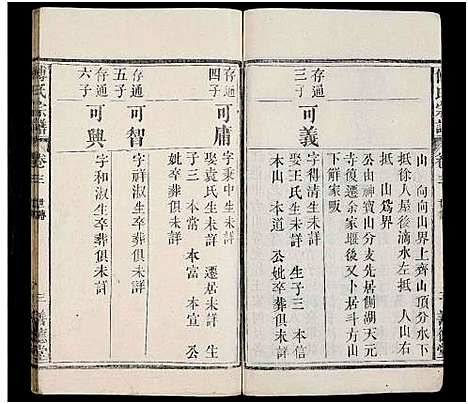 山向向山界上齊山頂分水示
抵徐人屋後滴水左抵人山右
抵山爲界
存通三子
可義
字得清生卒葬俱未詳
娶王氏生卒葬俱未詳 生子三 本
本山 本道 公妣卒葬俱未詳
公山神寶山分支先居側湖天元
寺復遷余家堰後又卜居斗方山
下解家畈
存通四子
可庸
字秉中生卒葬俱未詳
娶袁氏生卒葬俱未詳 遷居未詳 生
子三 本常 本富 本宣 公
妣卒葬俱未詳
存通五子
可智
字祥淑生卒葬俱未詳
存通六子
可興
字和淑生卒葬俱未詳
傅氏宗譜
卷三 世譜
三 善德堂